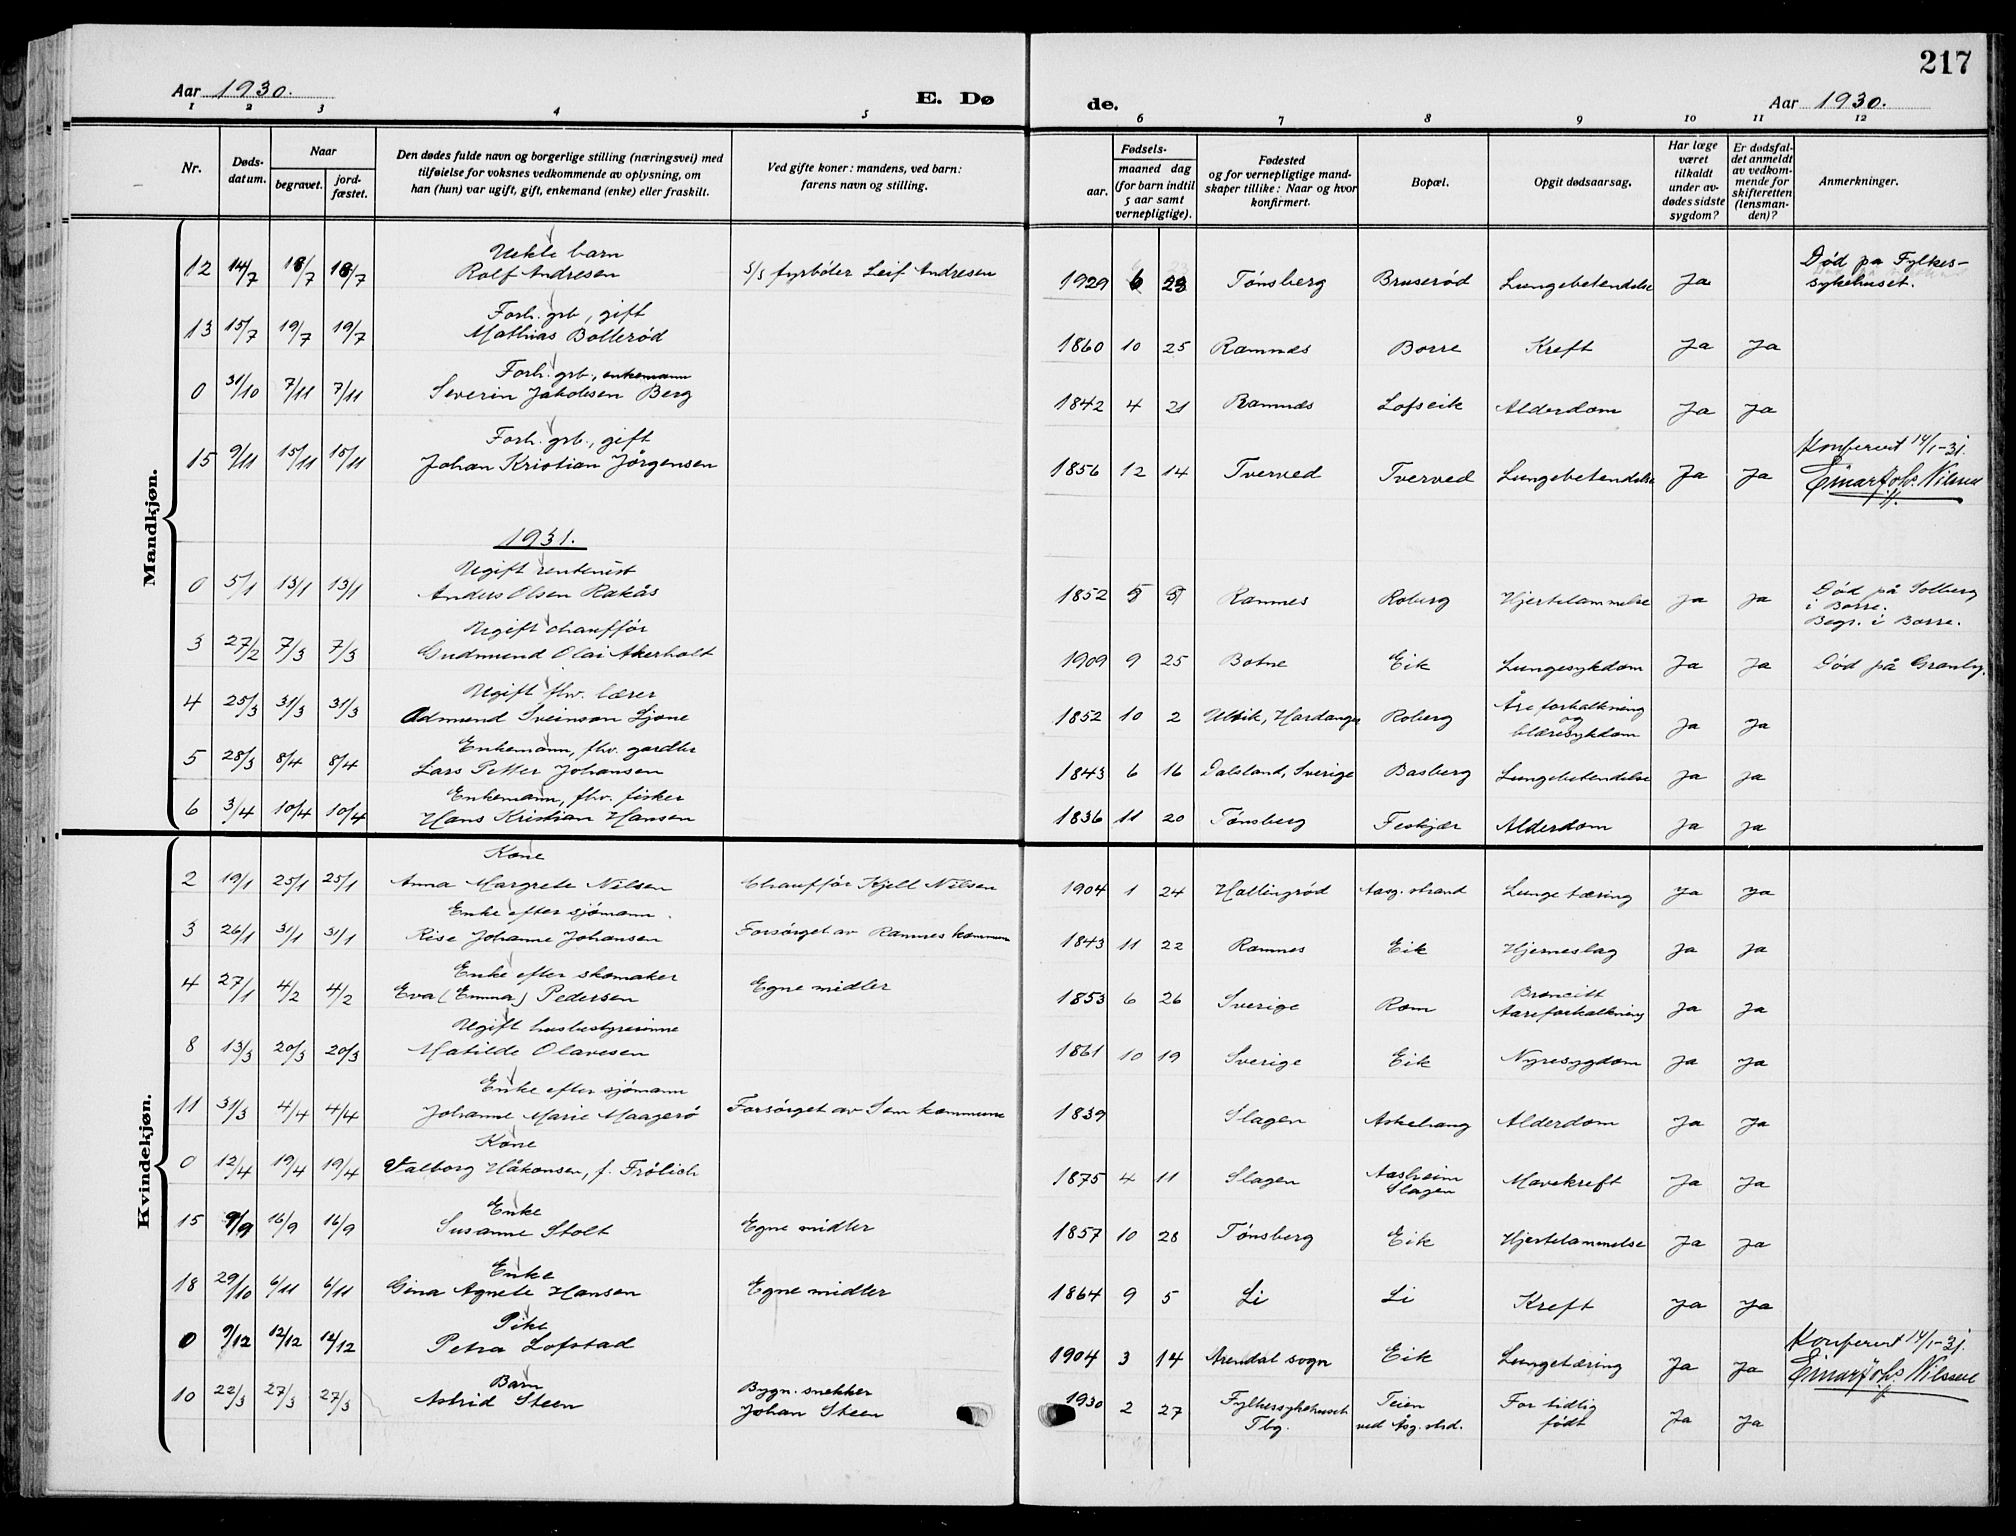 217
Aar 1930. E. Dø de. Aar 1930.
1 2 3 4 5 6 7 8 9 10 11 12
Nr. Døds-datum. Naar begravet. jord-fæstet. Den dødes fulde navn og borgerlige stilling (næringsvei) med tilføielse for voksnes vedkommende av oplysning, om han (hun) var ugift, gift, enkemand (enke) eller fraskilt. Ved gifte koner: mandens, ved barn: farens navn og stilling. Fødsels- aar. maaned dag (for barn indtil 5 aar samt vernepligtige). Fødested og for vernepligtige mand-skaper tillike: Naar og hvor konfirmert. Bopæl. Opgit dødsaarsag. Har læge været tilkaldt under av-dødes sidste sygdom? Er dødsfal-det anmeldt av vedkom-mende for skifteretten (lensman-den)? Anmerkninger.
Mandkjøn.
Uekte barn
12 14/7 18/7 18/7 Rolf Andresen S/S fyrbøter Leif Andresen 1929 6 23 Tønsberg Bruserød Lungebetendelse Ja Død på Fylkes-sykehuset.
Forh. grb, gift
13 15/7 19/7 19/7 Mathias Bollerød 1860 10 25 Ramnes Borre Kreft Ja Ja
Forh. grb., enkemann
0 31/10 7/11 7/11 Severin Jakobsen Berg 1842 4 21 Ramnes Lofseik Alderdom Ja Ja
Forh. grb., gift
15 9/11 15/11 15/11 Johan Kristian Jørgensen 1856 12 14 Tverved Tverved Lungebetendelse Ja Ja Konferert 14/1-31. Einar Johs. Nilssen
1931.
Ugift rentenist
0 5/1 13/1 13/1 Anders Olsen Rakås 1852 5 5 Ramnes Roberg Hjertelammelse Ja Ja Død på Solberg i Borre. Begr. i Borre.
Ugift chauffør
3 27/2 7/3 7/3 Gudmund Olai Akerholt 1909 9 25 Botne Eik Lungesykdom Ja Ja Død på Granly.
Ugift fhv. lærer
4 25/3 31/3 31/3 Admund Sveinson Ljone 1852 10 2 Ulvik, Hardanger Roberg Åreforkalkning og blæresykdom Ja Ja
Enkemann, fhv. gardbr
5 28/3 8/4 8/4 Lars Petter Johansen 1843 6 16 Dalsland, Sverige Basberg Lungebetendelse Ja Ja
Enkemann, fhv. fisker
6 3/4 10/4 10/4 Hans Kristian Hansen 1836 11 20 Tønsberg Feskjær Alderdom Ja Ja
Kvindekjøn.
Kone
2 19/1 25/1 25/1 Anna Margrete Nilsen Chauffør Kjell Nilsen 1904 1 24 Hallingrød Aasg. strand Lungetæring Ja Ja
Enke efter sjømann.
3 26/1 31/1 31/1 Rise Johanne Johansen Forsørget av Ramnes kommune 1843 11 22 Ramnes Eik Hjerneslag Ja Ja
Enke efter skomaker
4 27/1 4/2 4/2 Eva (Emma) Pedersen Egne midler 1853 6 26 Sverige Rom Broncitt Aareforkalkning Ja Ja
Ugift husbestyrerinne
8 13/3 20/3 20/3 Matilde Olavesen 1861 10 19 Sverige Eik Nyresygdom Ja Ja
Enke efter sjømann
11 31/3 4/4 4/4 Johanne Marie Maagerø Forsørget av Sem kommune 1839 Slagen Askehaug Alderdom Ja Ja
Kone
0 12/4 19/4 19/4 Valborg Håkonsen, f. Frølich 1875 4 11 Slagen Aasheim Slagen Mavekreft Ja Ja
Enke
15 9/9 16/9 16/9 Susanne Stolt Egne midler 1857 10 28 Tønsberg Eik Hjertelammelse Ja Ja
Enke
18 29/10 6/11 6/11 Gina Agnete Hansen Egne midler 1864 9 5 Li Li Kreft Ja Ja
Pike
0 9/12 12/12 12/12 Petra Lofstad 1904 3 14 Arendal sogn Eik Lungetæring Ja Ja Konferert 14/1-31. Einar Johs. Nilssen
Barn
10 22/3 27/3 27/3 Astrid Steen Bygn. snekker Johan Steen 1930 2 27 Fylkessykehuset Tbg. Teien ved Åsg. strd. For tidlig født Ja Ja